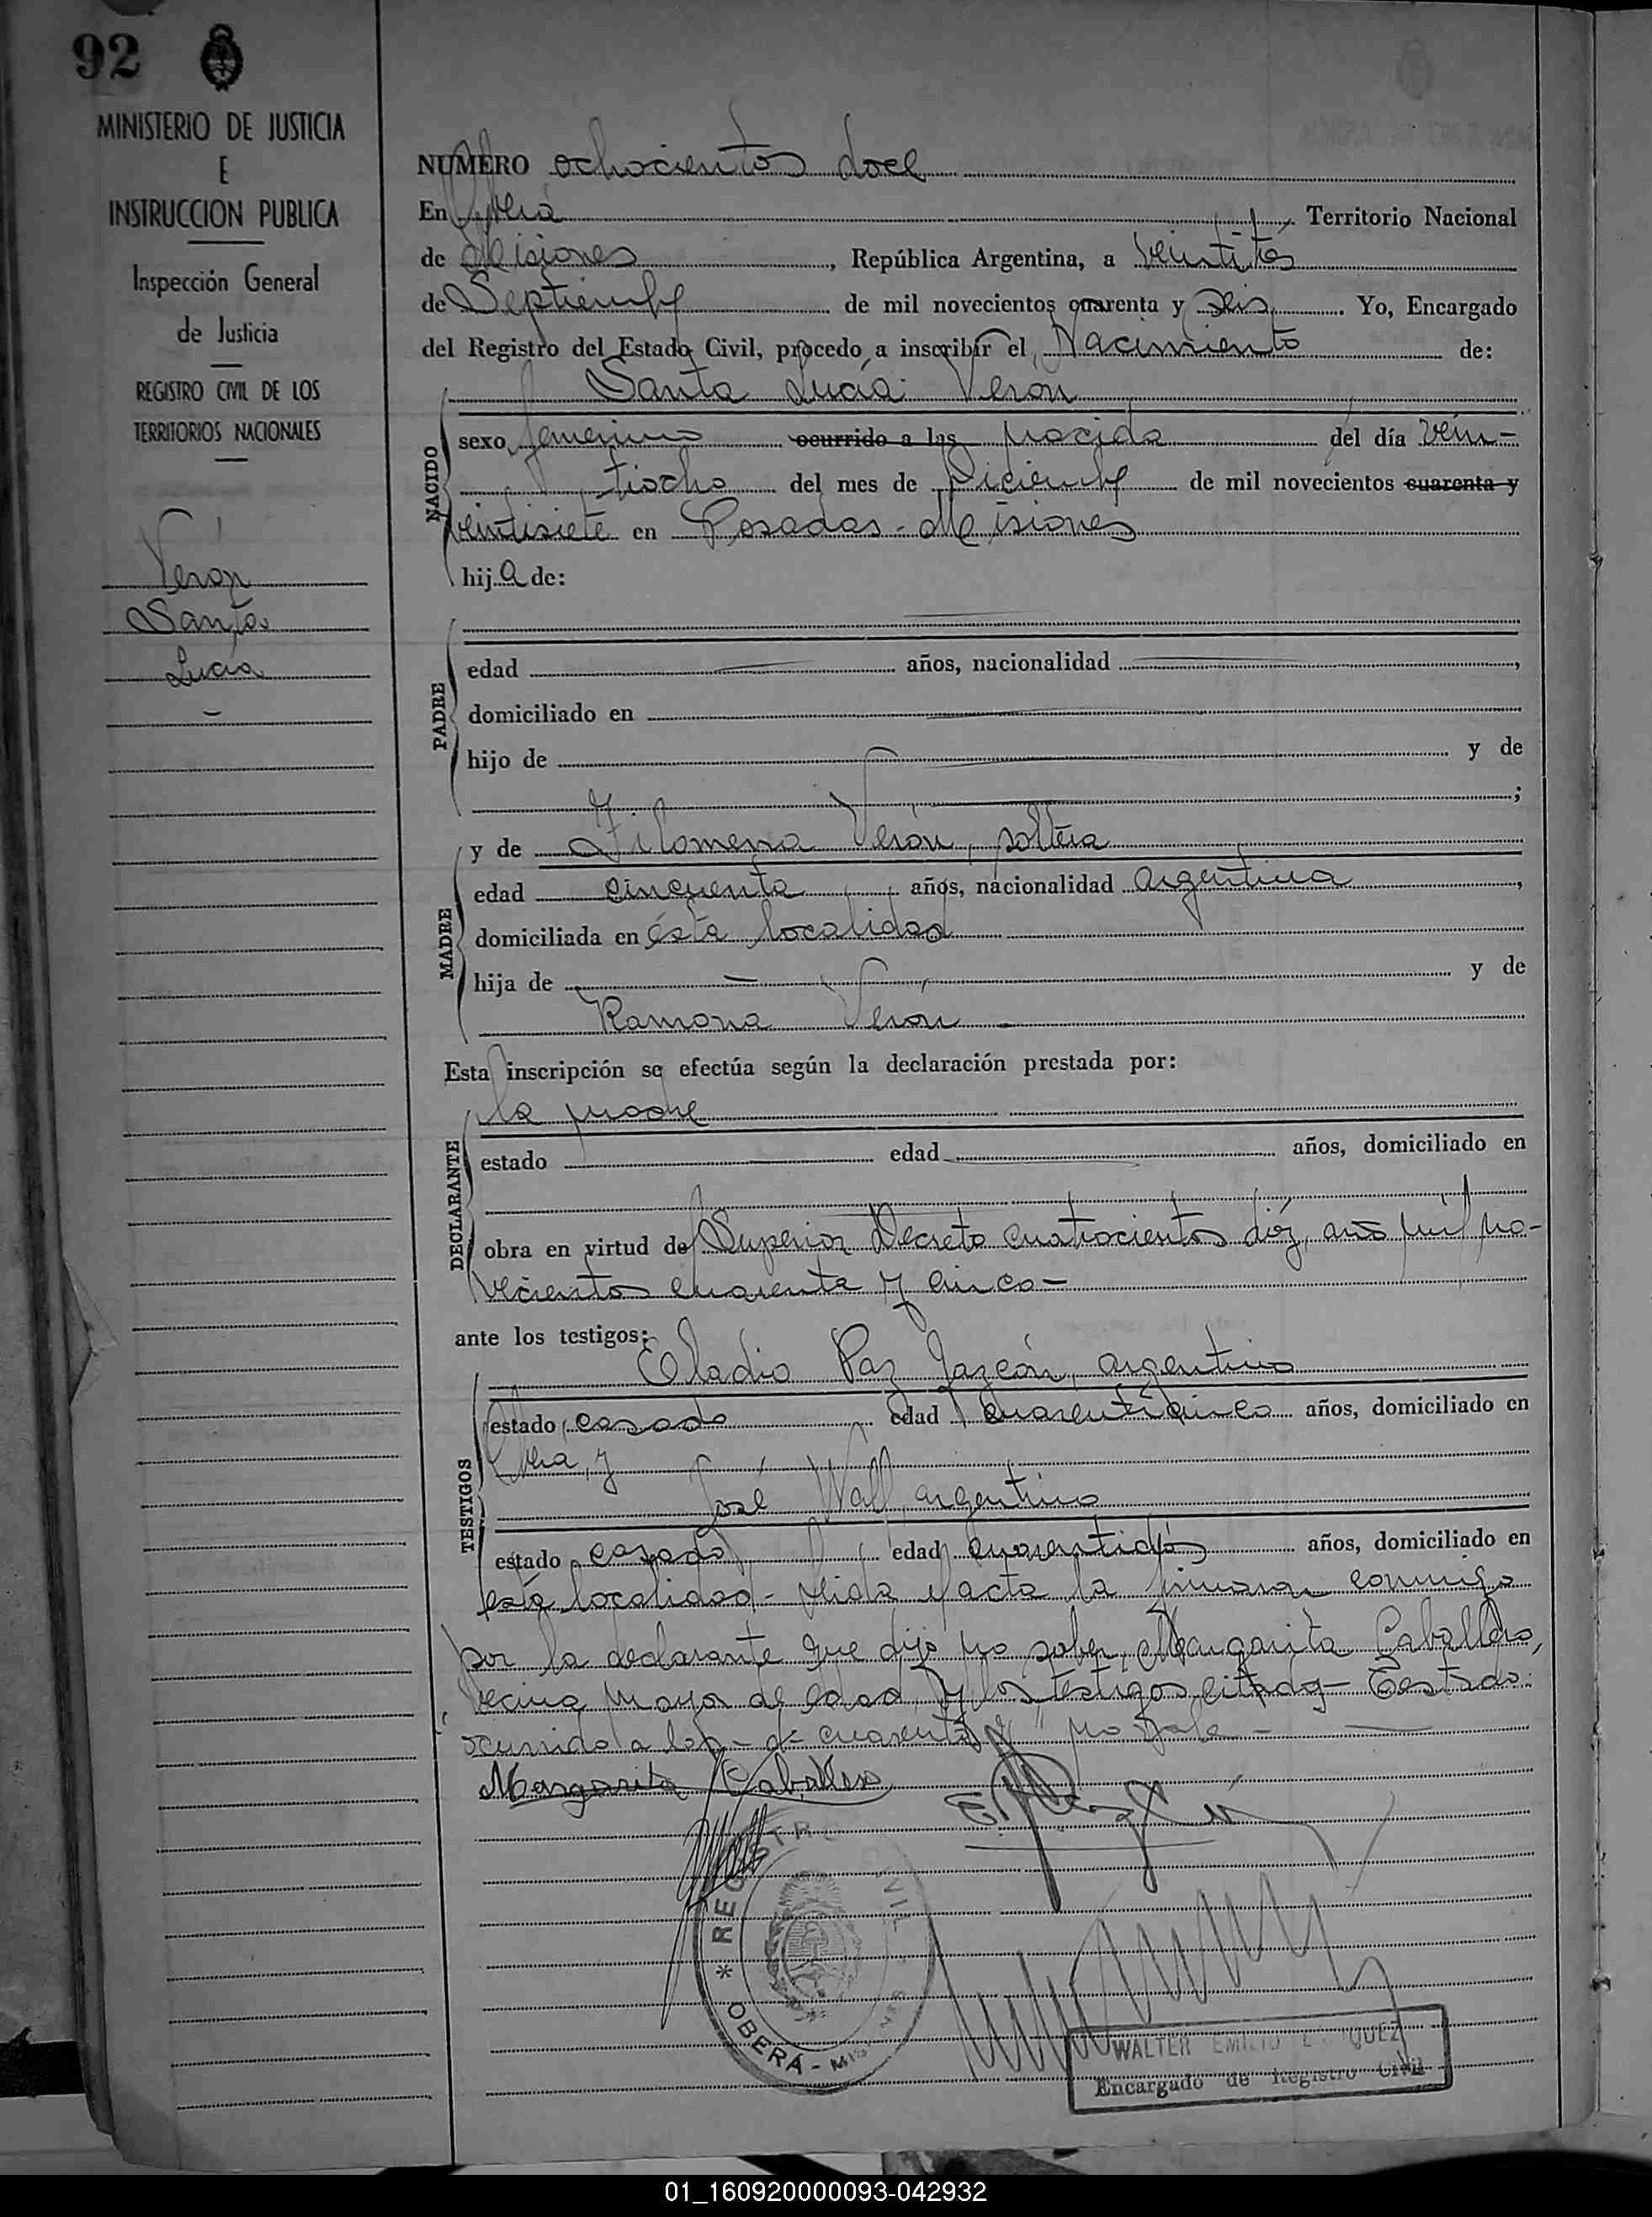 92
MINISTERIO DE JUSTICIA
E
INSTRUCCION PUBLICA
Inspección General
de Justicia
REGISTRO CIVIL DE LOS
TERRITORIOS NACIONALES
Verón
Santa
Lucía
NUMERO ochocientos doce
En Oberá Territorio Nacional
de Misiones, República Argentina, a veintitrés
de Septiembre de mil novecientos cuarenta y seis. Yo, Encargado
del Registro del Estado Civil, procedo a inscribir el Nacimiento de:
NACIDO
Santa Lucía Verón
sexo femenino ocurrido a las nacida del día vein-
tiocho del mes de Diciembre de mil novecientos cuarenta y
veintisiete en Posadas - Misiones
hija de:
PADRE
edad años, nacionalidad ,
domiciliado en
hijo de y de
;
MADRE
y de Filomena Verón, soltera
edad cincuenta años, nacionalidad argentina,
domiciliada en ésta localidad
hija de — y de
Ramona Verón -
Esta inscripción se efectúa según la declaración prestada por:
DECLARANTE
la madre
estado edad años, domiciliado en
obra en virtud del Superior Decreto cuatrocientos diéz, año mil no-
vecientos cuarenta y cinco-
ante los testigos:
TESTIGOS
Eladio Paz Gazcón, argentino
estado casado edad cuarenticinco años, domiciliado en
Oberá, y
José Wall, argentino
estado casado edad cuarentidós años, domiciliado en
ésta localidad - Leída el acta la firmaron conmigo
por la declarante que dijo no saber, Margarita Caballero,
vecina mayor de edad, y los testigos citados - Testado:
ocurrido a las - d- cuarenta y " no vale -
Margarita Caballero
* REGISTRO CIVIL
OBERÁ - MISIONES
WALTER EMILIO
Encargado de Registro Civil
01_160920000093-042932